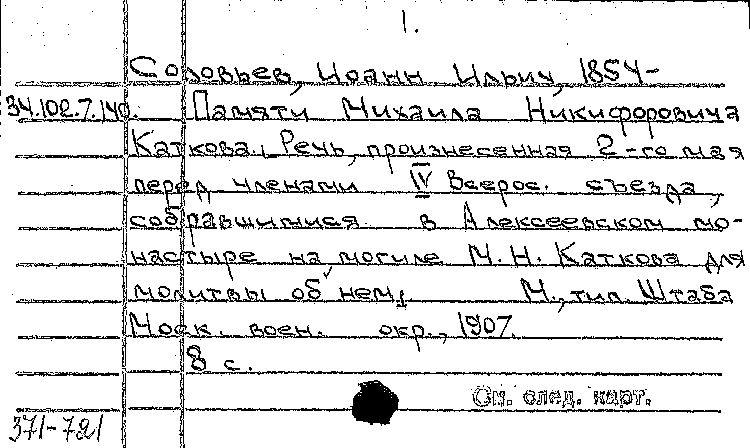 1.
Соловьев, Иоанн Ильич, 1854-
34.102.7.140. Памяти Михаила Никифоровича
Каткова. Речь, произнесенная 2-го мая
перед членами IV Всерос. съезда,
собравшимися в Алексеевском мо-
настыре на могиле М.Н. Каткова для
молитвы об нем. М., тип. Штаба
Моск. воен. окр., 1907.
8 с.
См. след. карт.
371-721